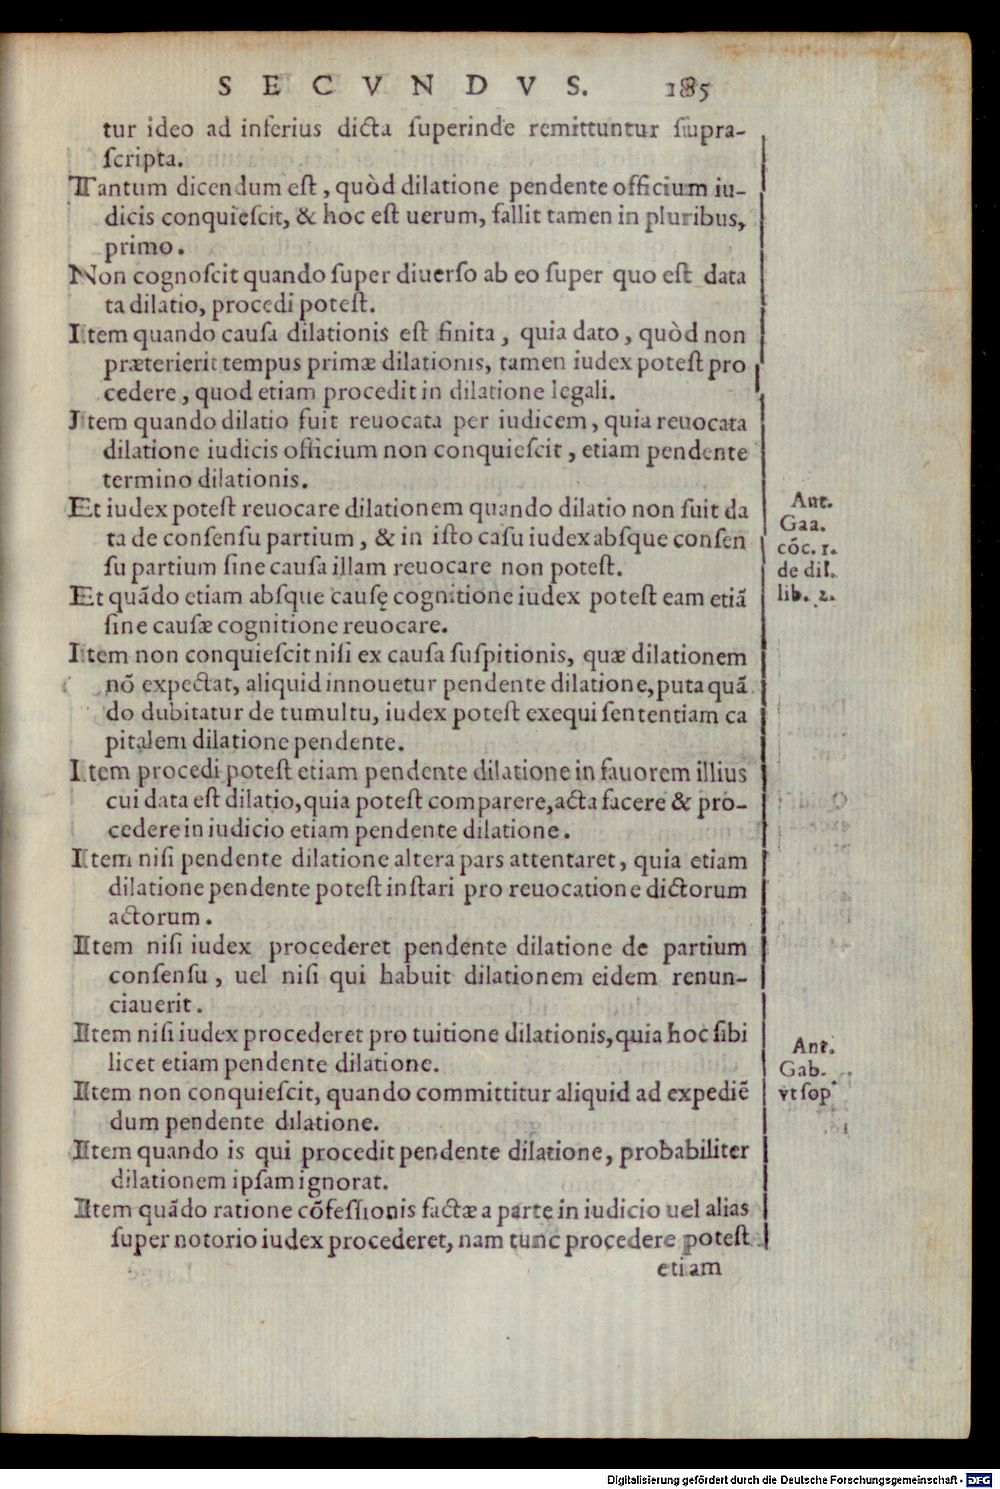 SECVNDVS. 185
tur ideo ad inferius dicta superinde remittuntur supra-
scripta.
Tantum dicendum est, quòd dilatione pendente officium iu-
dicis conquiescit, & hoc est uerum, fallit tamen in pluribus,
primo.
Non cognoscit quando super diuerso ab eo super quo est data
ta dilatio, procedi potest.
Item quando causa dilationis est finita, quia dato, quòd non
præterierit tempus primæ dilationis, tamen iudex potest pro
cedere, quod etiam procedit in dilatione legali.
Item quando dilatio fuit reuocata per iudicem, quia reuocata
dilatione iudicis officium non conquiescit, etiam pendente
termino dilationis.
Et iudex potest reuocare dilationem quando dilatio non fuit da
ta de consensu partium, & in isto casu iudex absque consen
su partium sine causa illam reuocare non potest.
Et quãdo etiam absque causę cognitione iudex potest eam etiã
sine causæ cognitione reuocare.
Item non conquiescit nisi ex causa suspitionis, quæ dilationem
nõ expectat, aliquid innouetur pendente dilatione, puta quã
do dubitatur de tumultu, iudex potest exequi sententiam ca
pitalem dilatione pendente.
Item procedi potest etiam pendente dilatione in fauorem illius
cui data est dilatio, quia potest comparere, acta facere & pro-
cedere in iudicio etiam pendente dilatione.
Item nisi pendente dilatione altera pars attentaret, quia etiam
dilatione pendente potest instari pro reuocatione dictorum
actorum.
Item nisi iudex procederet pendente dilatione de partium
consensu, uel nisi qui habuit dilationem eidem renun-
ciauerit.
Item nisi iudex procederet pro tuitione dilationis, quia hoc sibi
licet etiam pendente dilatione.
Item non conquiescit, quando committitur aliquid ad expediẽ
dum pendente dilatione.
Item quando is qui procedit pendente dilatione, probabiliter
dilationem ipsam ignorat.
Item quãdo ratione cõfessionis factæ a parte in iudicio uel alias
super notorio iudex procederet, nam tunc procedere potest
etiam
Ant.
Gaa.
cóc. 1.
de dil.
lib. 2.
Ant.
Gab.
vt sop
Digitalisierung gefördert durch die Deutsche Forschungsgemeinschaft - DFG